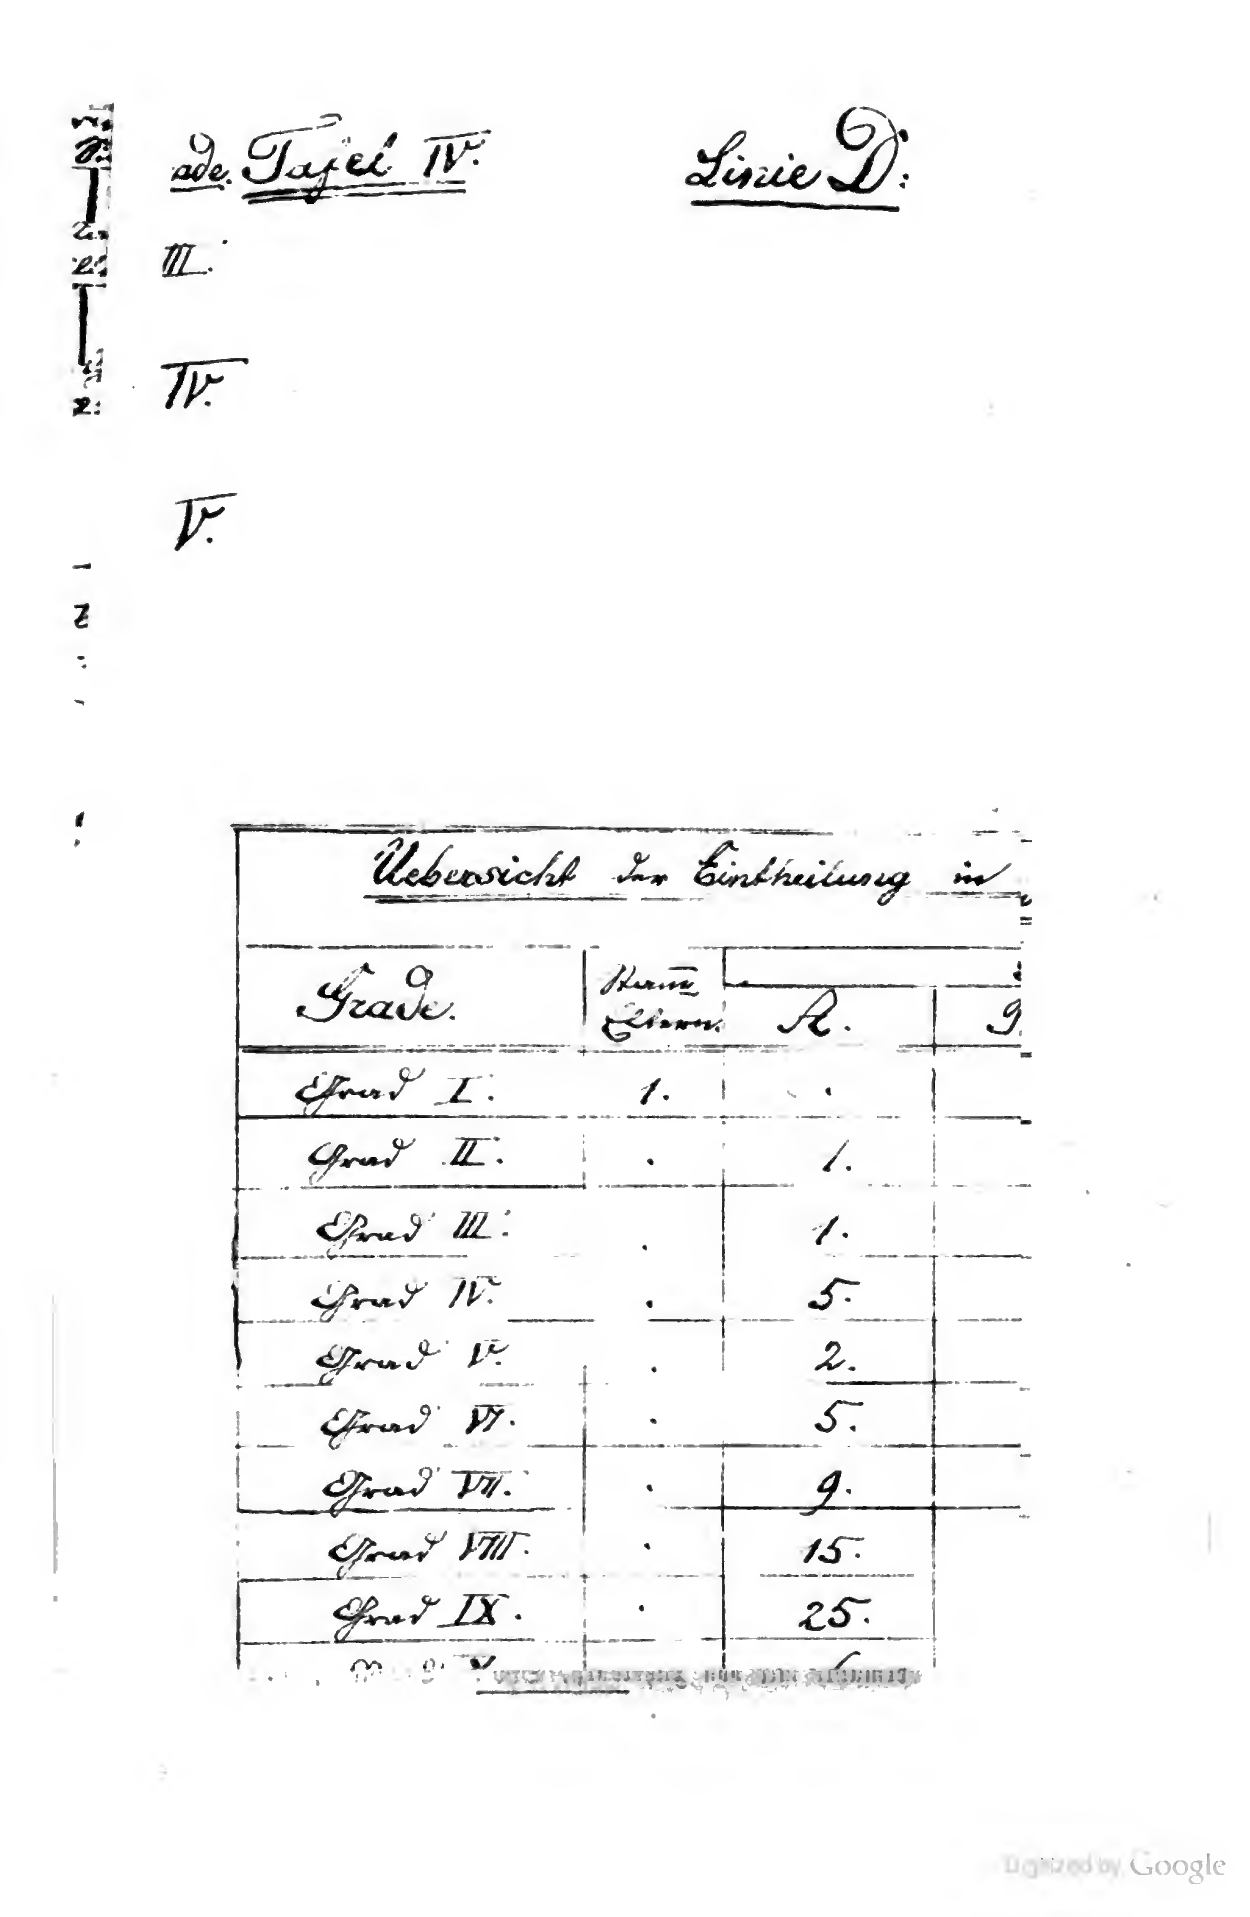 ade. Tafel IV. Linie D:
III.
IV.
V.
Uebersicht der Eintheilung in
Grade. Stam̅ Eltern. A.
Grad I. 1. .
Grad II. . 1.
Grad III. . 1.
Grad IV. . 5.
Grad V. . 2.
Grad VI. . 5.
Grad VII. . 9.
Grad VIII. . 15.
Grad IX. . 25.
Digitized by Google